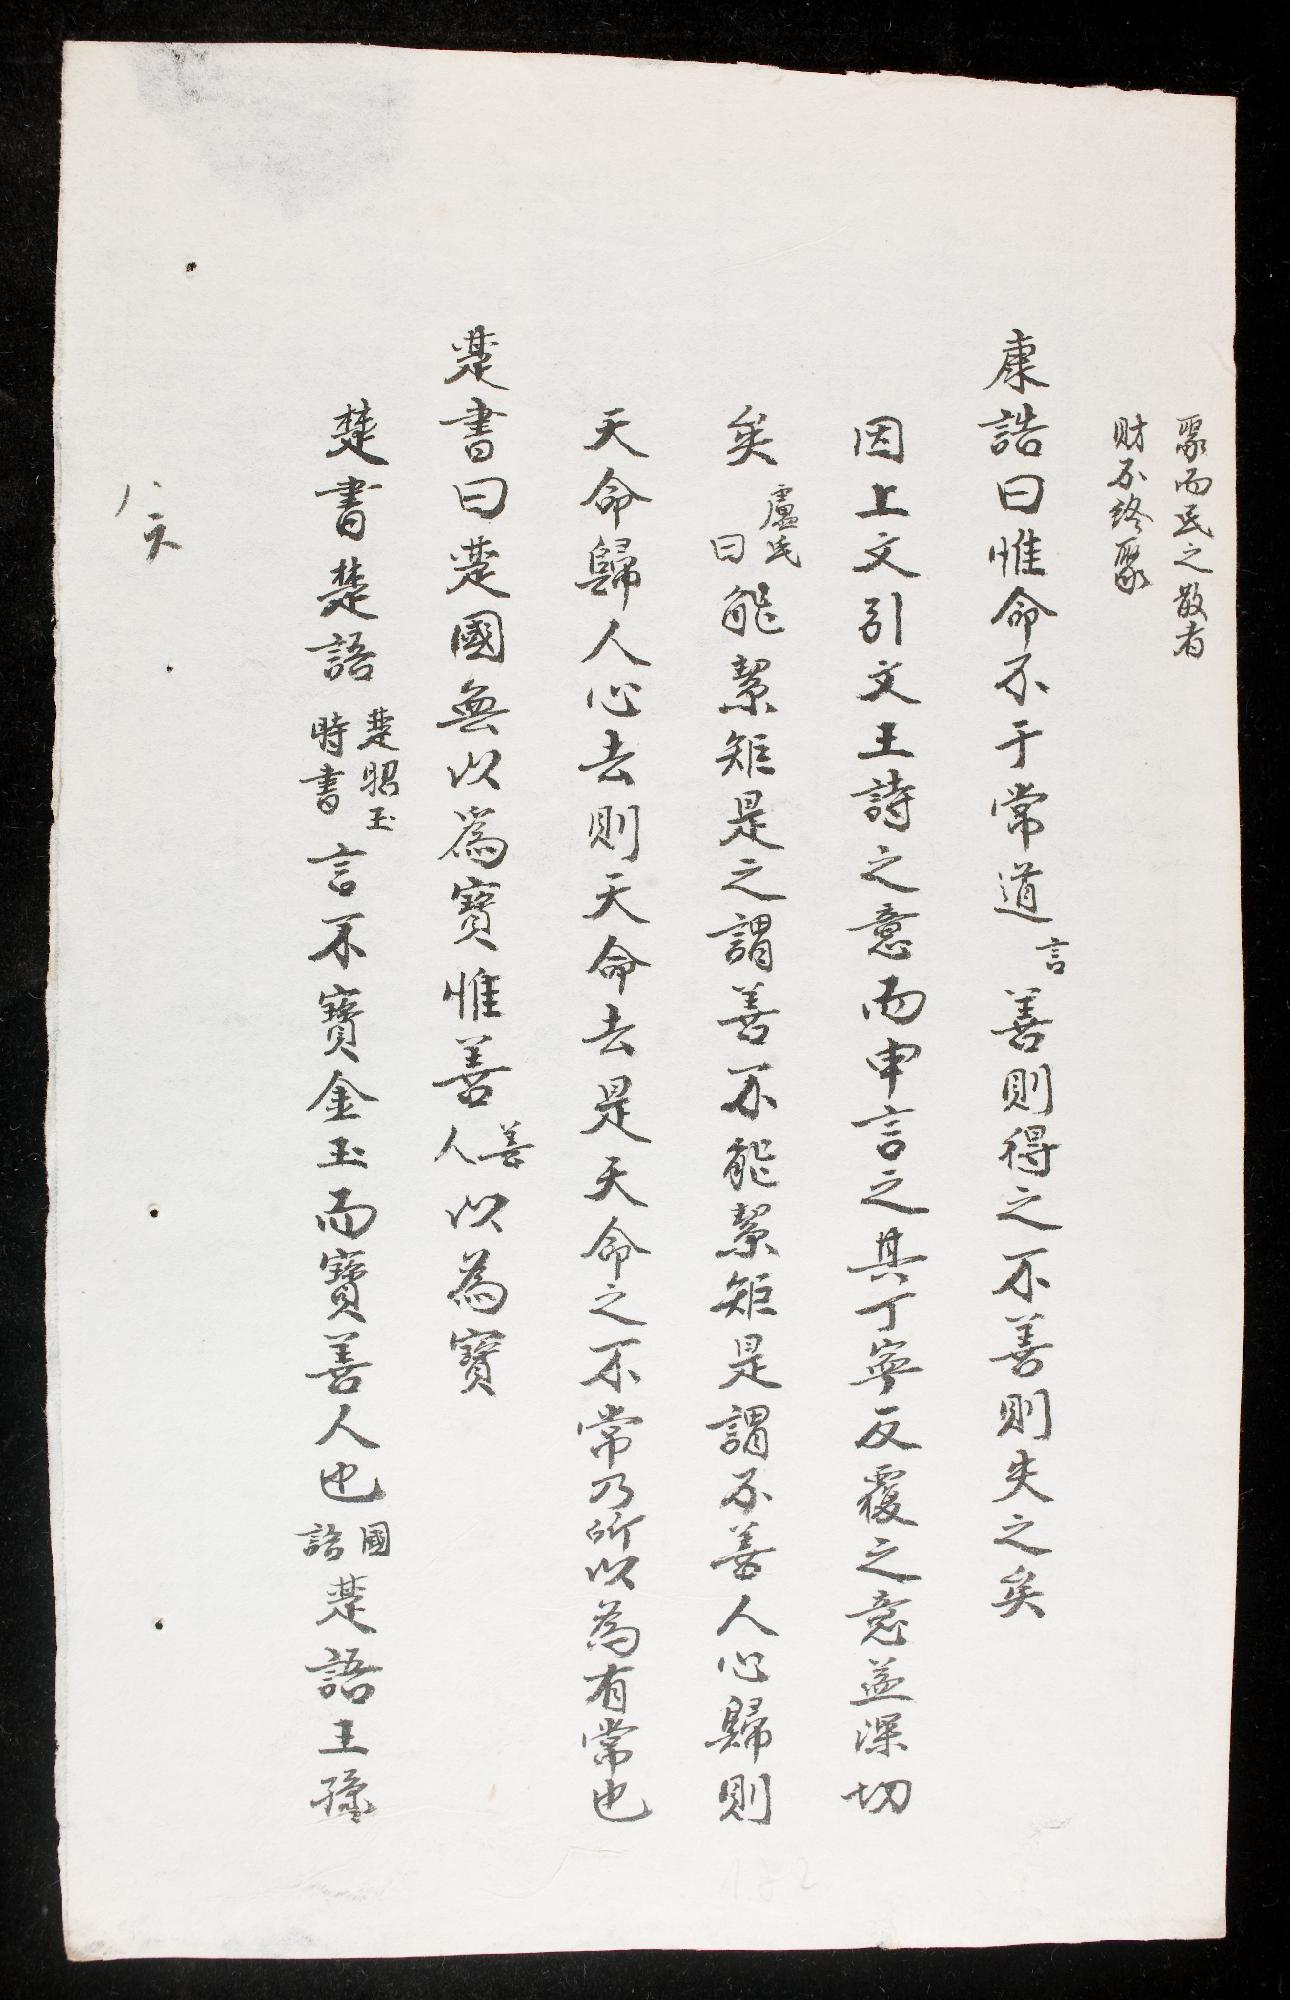 聚而民之散者
財不終聚
康誥曰惟命不于常道言善則得之不善則失之矣
因上文引文王詩之意而申言之其丁寧反覆之意益深切
矣盧氏曰能絜矩是之謂善不能絜矩是謂不善人心歸則
天命歸人心去則天命去是天命之不常乃所以為有常也
楚書曰楚國無以為寶惟善善人以為寶
楚書楚語楚昭王時書言不寶金玉而寶善人也國語楚語王孫